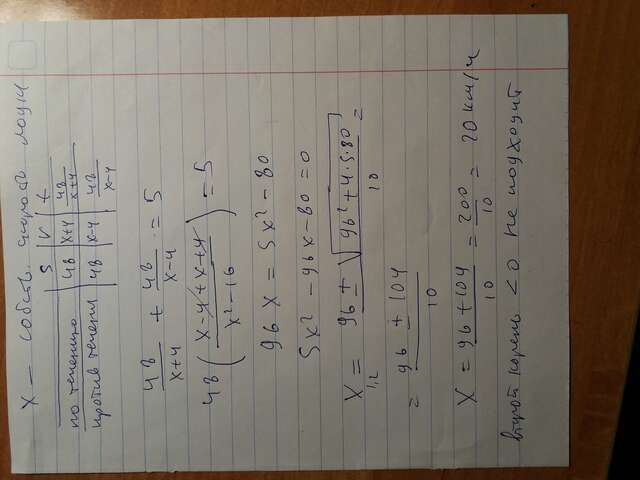 x — собств. скорость лодки
S V t
по течению 48 x+4 48/(x+4)
против течен 48 x-4 48/(x-4)
48/(x+4) + 48/(x-4) = 5
48 ( (x-4+x+4)/(x²-16) ) = 5
96 x = 5x² - 80
5x² - 96x - 80 = 0
x₁,₂ = (96 ± √(96² + 4·5·80))/10 =
= (96 ± 104)/10
x = (96+104)/10 = 200/10 = 20 км/ч
второй корень < 0 не подходит